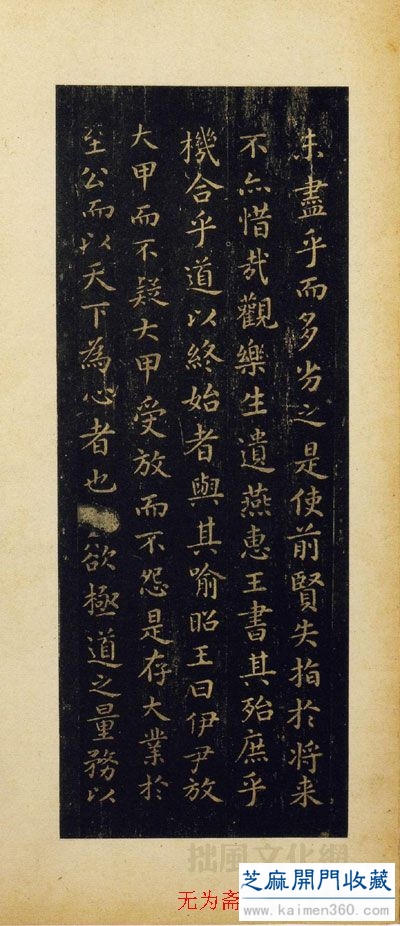 未盡乎而多劣之是使前賢失指於将来
不亦惜哉觀樂生遺燕惠王書其殆庶乎
機合乎道以終始者與其喻昭王曰伊尹放
大甲而不疑大甲受放而不怨是存大業於
至公而以天下為心者也欲極道之量務以
拙風文化網
无为斋
芝麻開門收藏
www.kaimen360.com